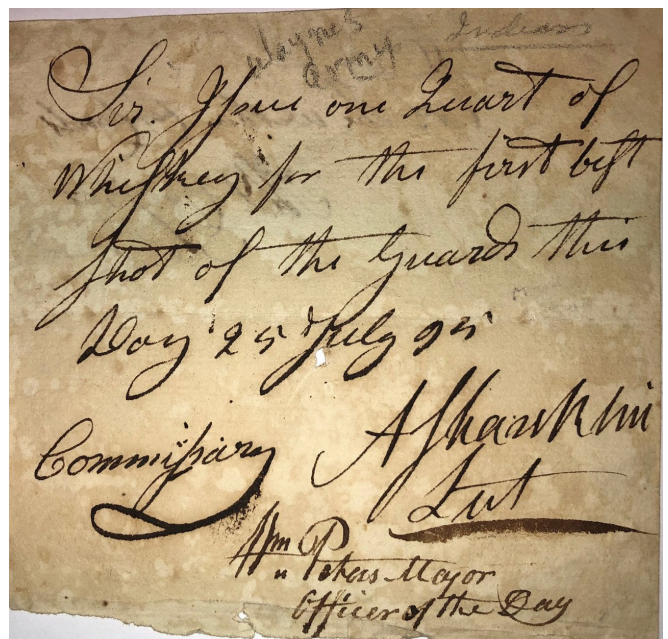 Waynes
army
Indians
Sir. Issue one Quart of
Whiskey for the first best
shot of the Guards this
Day 25 July 95
Commissary
Lut
Wm Peters Major
Officer of the Day